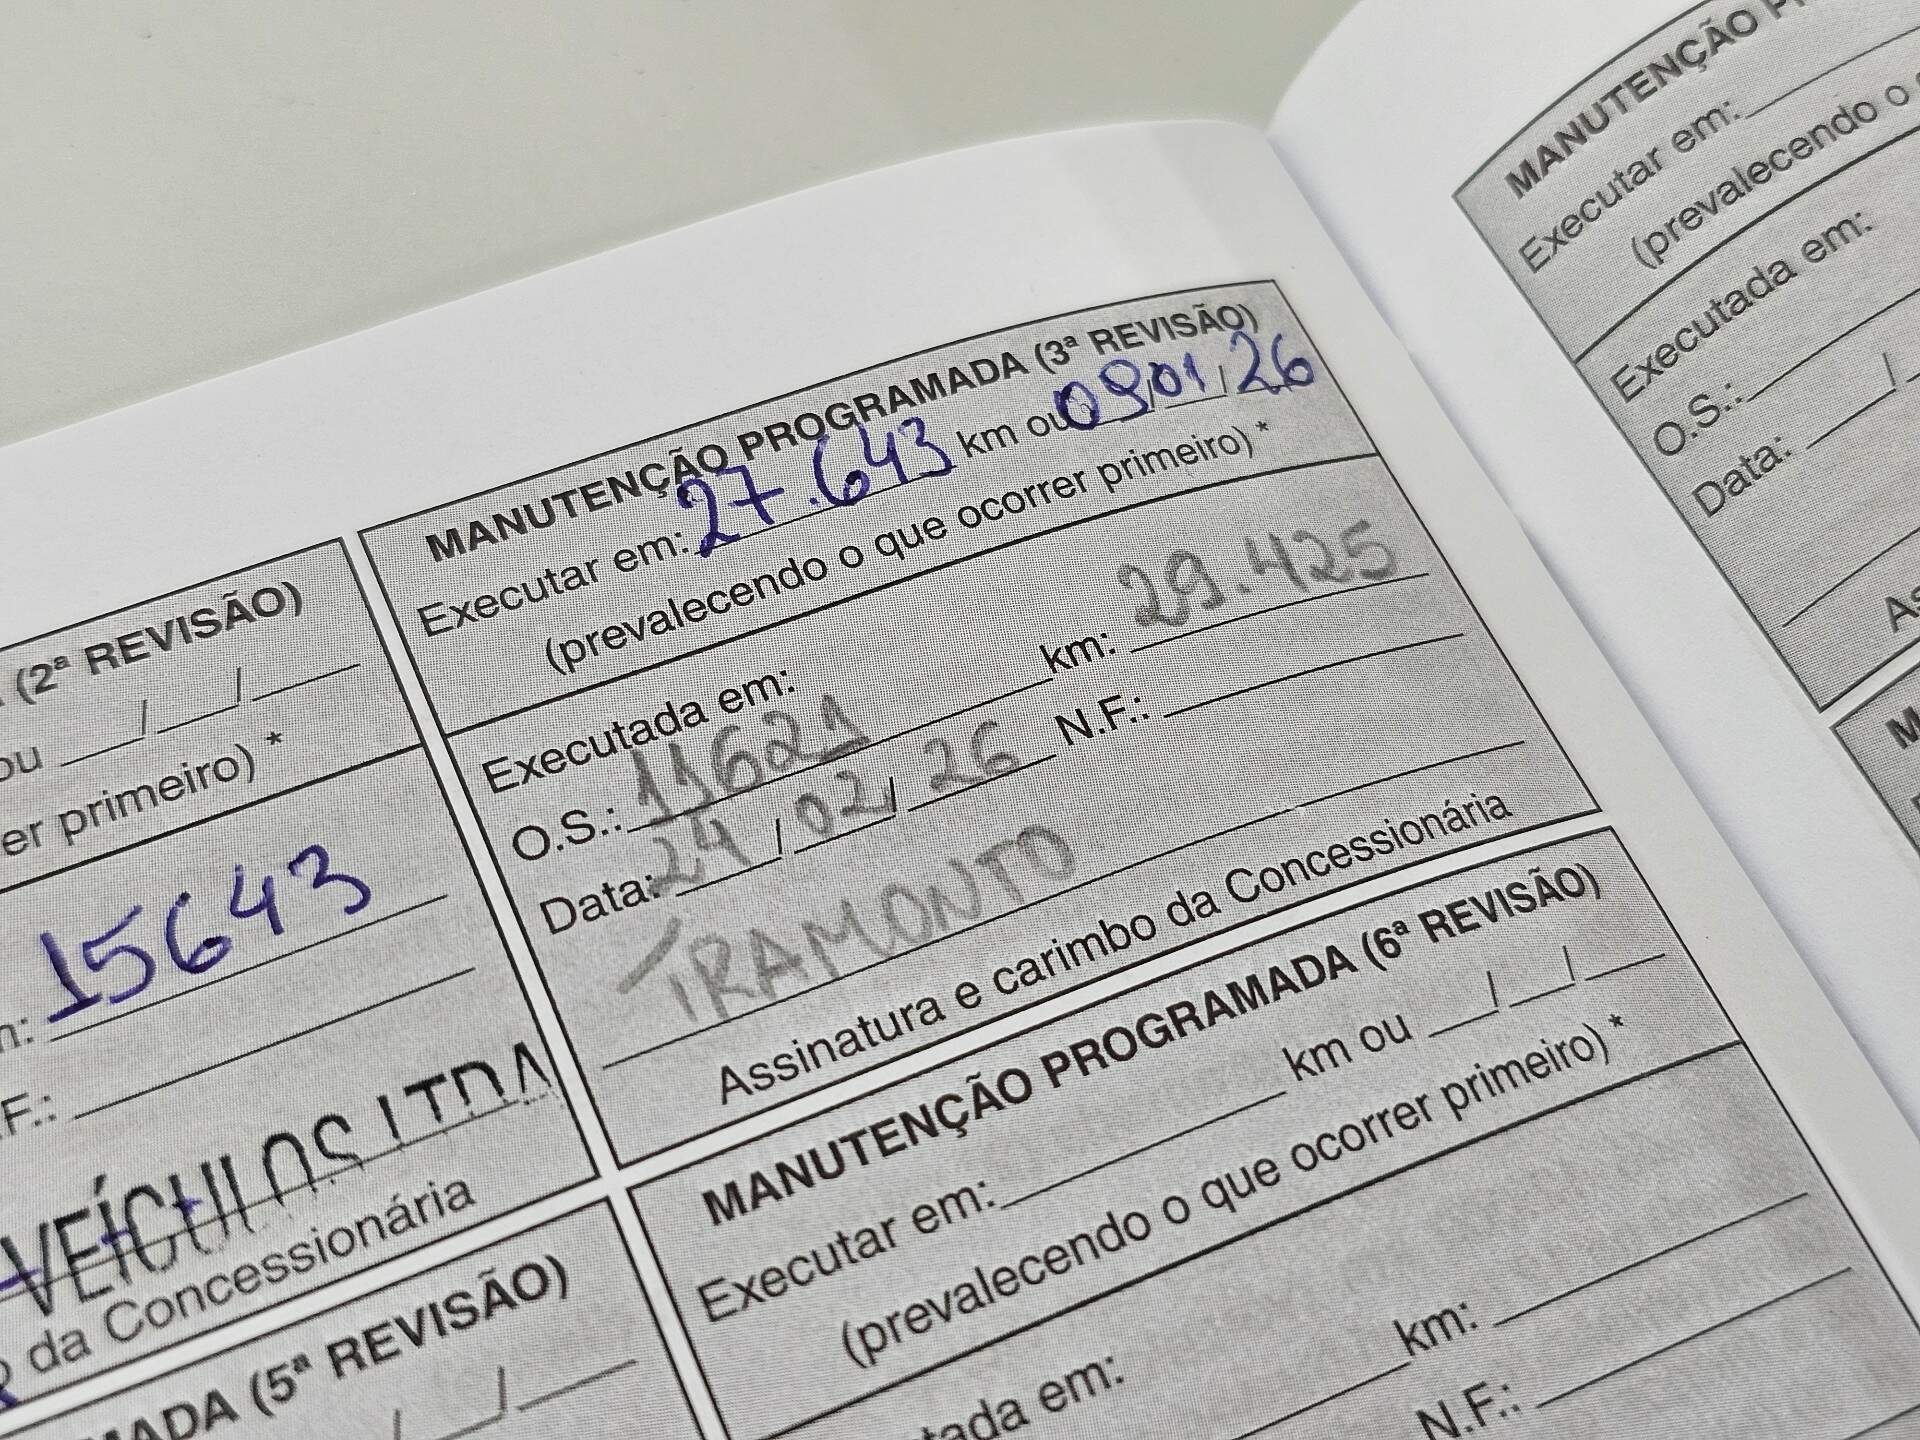 MANUTENÇÃO PROGRAMADA (3ª REVISÃO)
Executar em: 27.643 km ou 09/01/26
(prevalecendo o que ocorrer primeiro) *
Executada em: km: 29.425
O.S.: 11621 N.F.:
Data: 24/02/26
TRAMONTO
Assinatura e carimbo da Concessionária
(2ª REVISÃO)
ou / /
er primeiro) *
15643
F.:
VEÍCULOS LTDA
da Concessionária
MADA (5ª REVISÃO)
/ /
MANUTENÇÃO PROGRAMADA (6ª REVISÃO)
Executar em: km ou / /
(prevalecendo o que ocorrer primeiro) *
tada em: km:
N.F.:
MANUTENÇÃO P
Executar em:
(prevalecendo o
Executada em:
O.S.:
Data: /
As
M